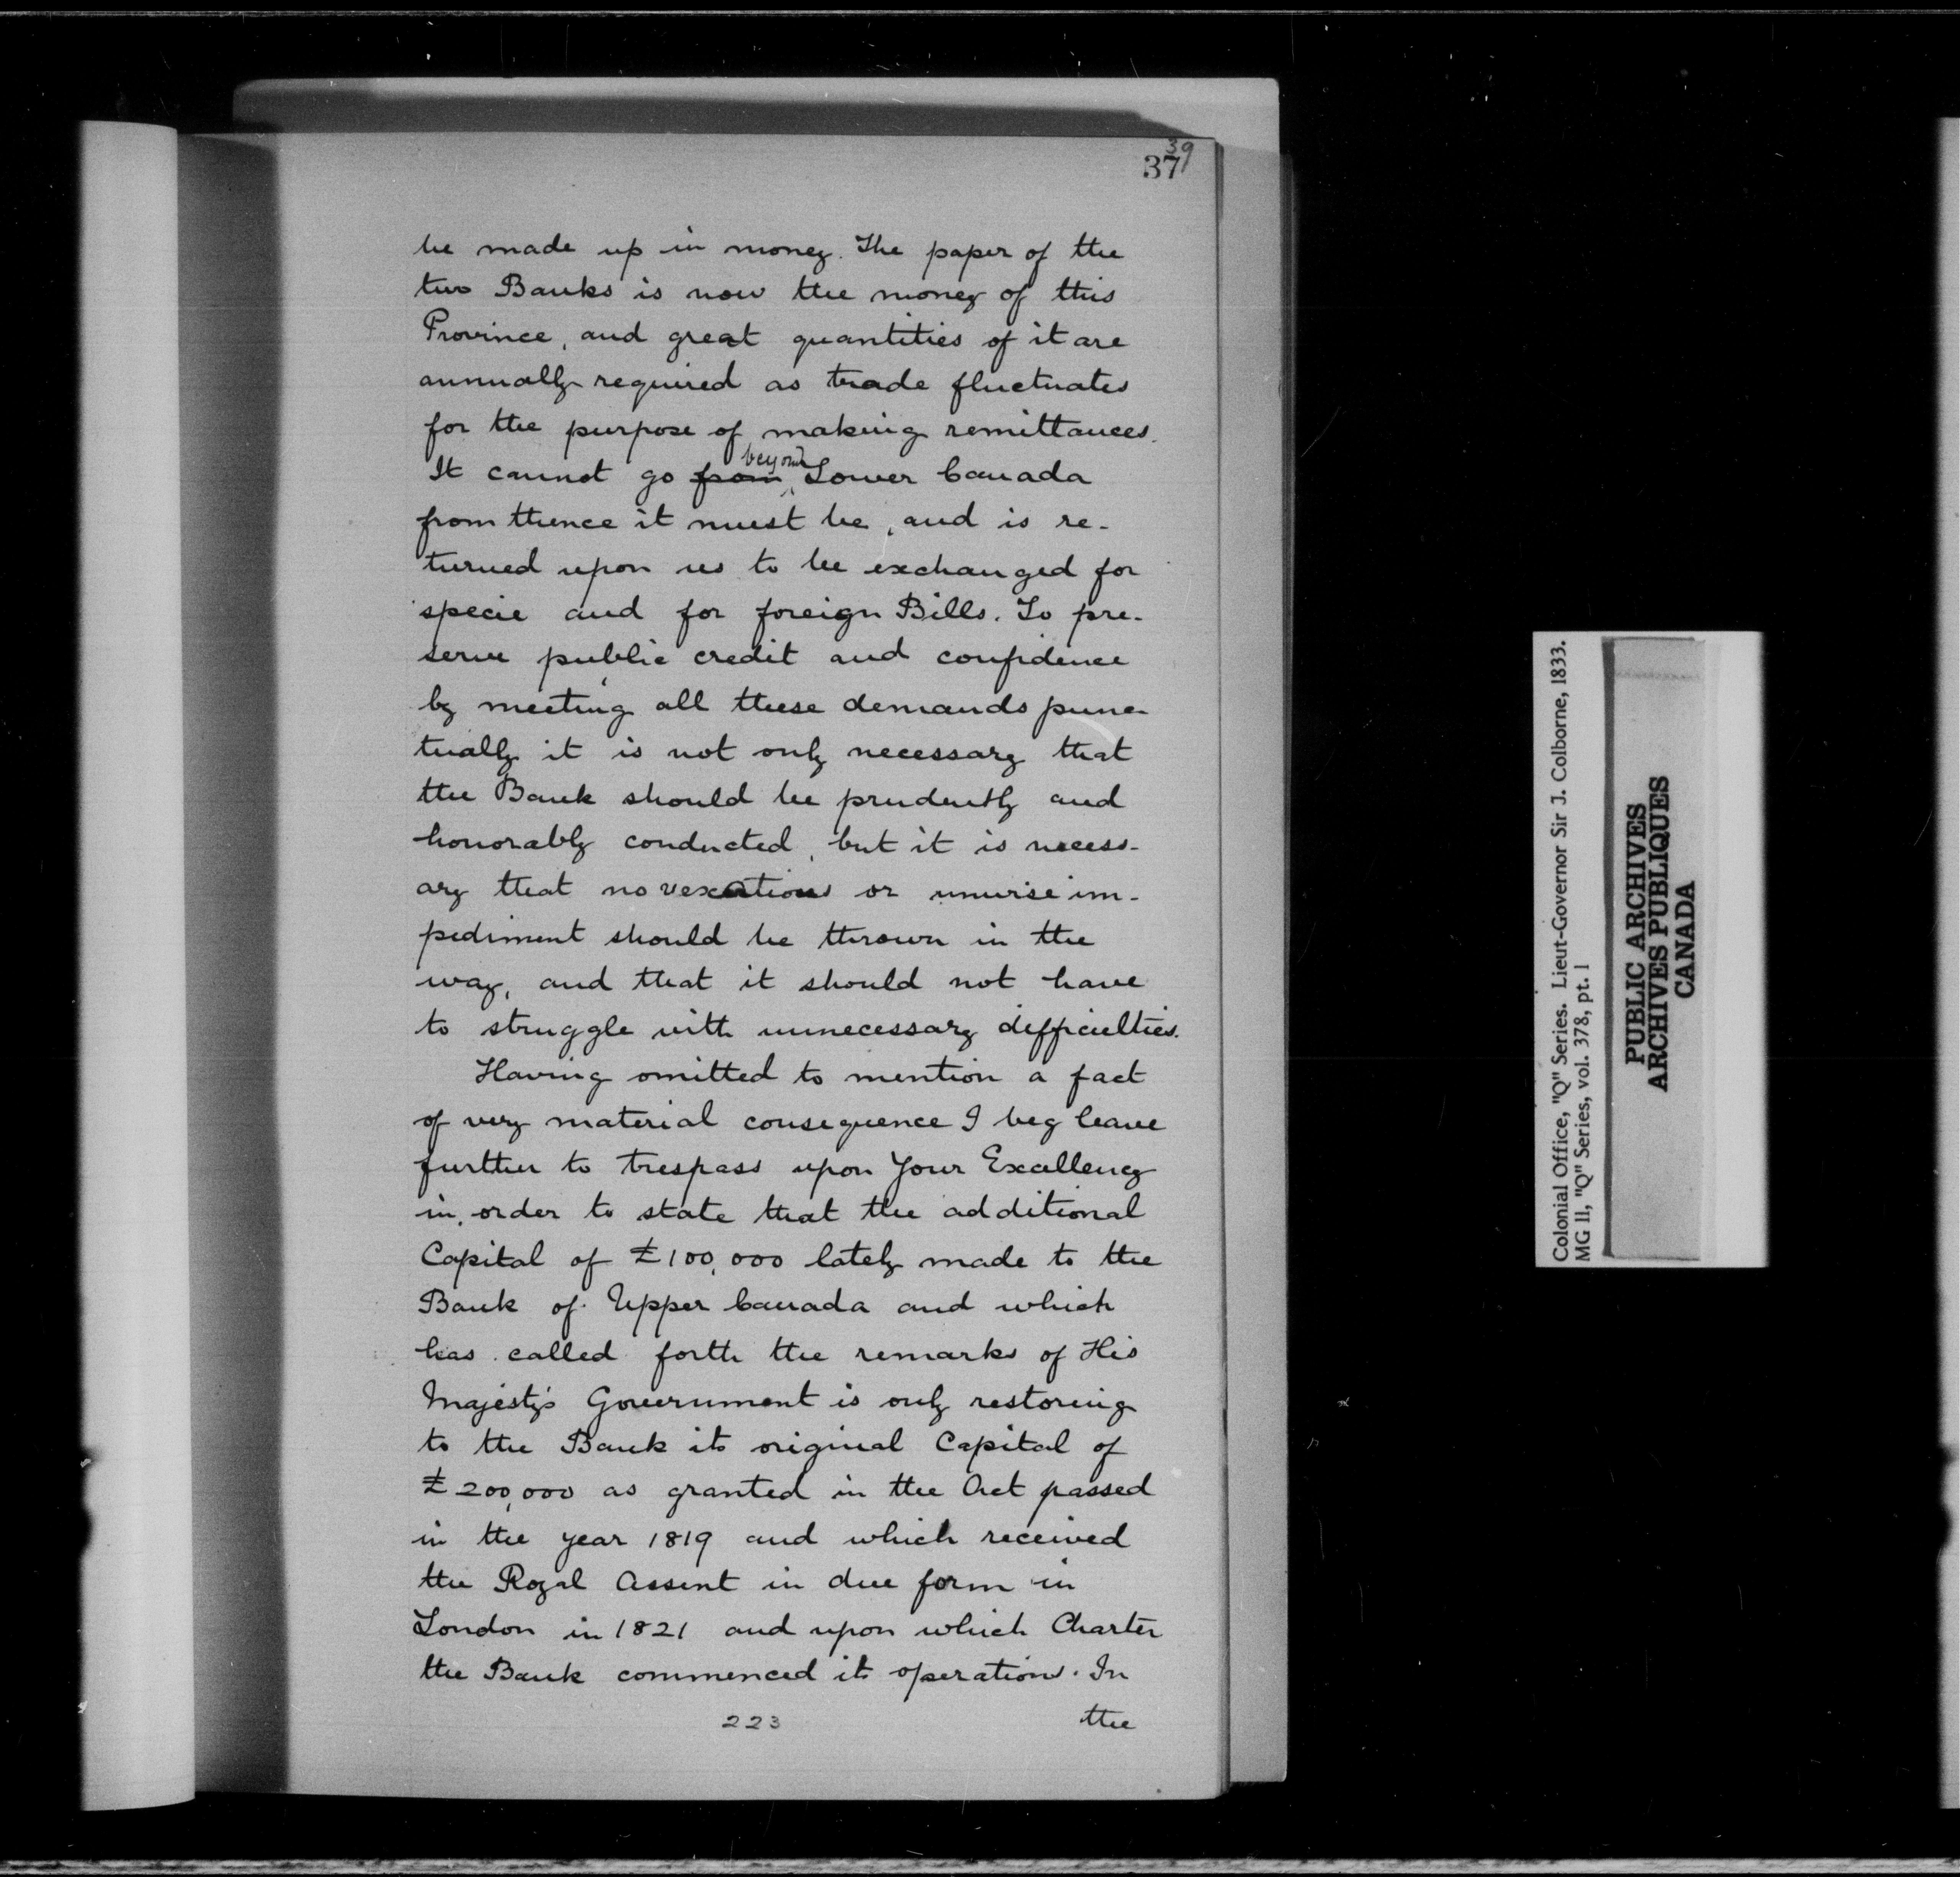 39
37
be made up in money. The paper of the
two Banks is now the money of this
Province, and great quantities of it are
annually required as trade fluctuates
for the purpose of making remittances.
It cannot go from beyond Lower Canada
from thence it must be, and is re-
turned upon us to be exchanged for
specie and for foreign Bills. To pre-
serve public credit and confidence
by meeting all these demands punc-
tually it is not only necessary that
the Bank should be prudently and
honorably conducted, but it is necess-
ary that no vexatious or unwise im-
pediment should be thrown in the
way, and that it should not have
to struggle with unnecessary difficulties.
Having omitted to mention a fact
of very material consequence I beg leave
further to trespass upon Your Excellency
in order to state that the additional
Capital of £100,000 lately made to the
Bank of Upper Canada and which
has called forth the remarks of His
Majesty's Government is only restoring
to the Bank its original Capital of
£200,000 as granted in the Act passed
in the year 1819 and which received
the Royal Assent in due form in
London in 1821 and upon which Charter
the Bank commenced its operations. In
223 the
Colonial Office, "Q" Series. Lieut-Governor Sir J. Colborne, 1833.
MG 11, "Q" Series, vol. 378, pt. 1
PUBLIC ARCHIVES
ARCHIVES PUBLIQUES
CANADA